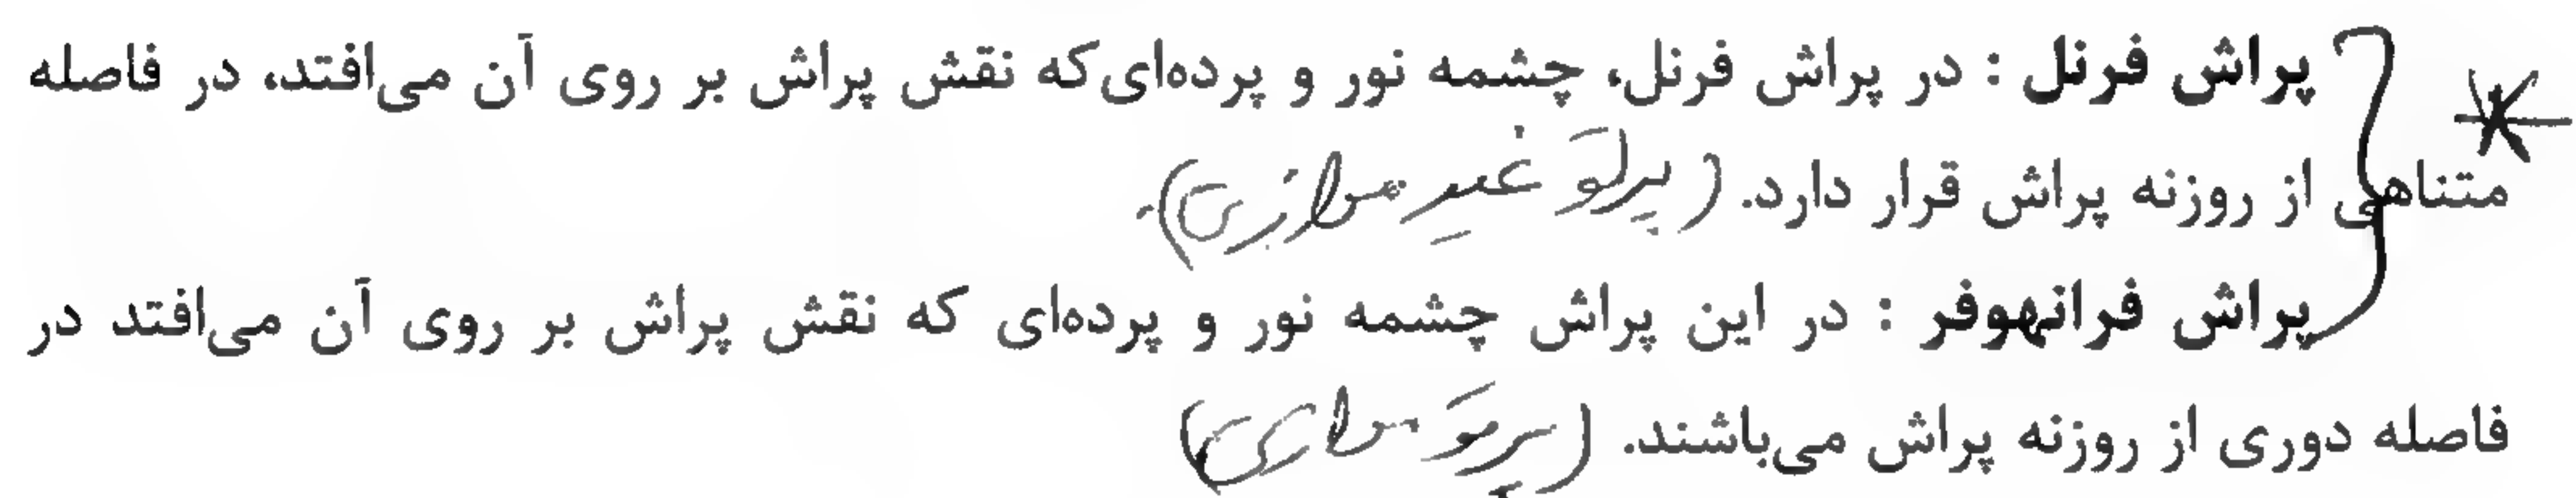 پراش فرنل : در پراش فرنل، چشمه نور و پرده‌ای که نقش پراش بر روی آن می‌افتد، در فاصله
متناهی از روزنه پراش قرار دارد. (پرتو غیر موازی).
پراش فرانهوفر : در این پراش چشمه نور و پرده‌ای که نقش پراش بر روی آن می‌افتد در
فاصله دوری از روزنه پراش می‌باشند. (پرتو موازی)